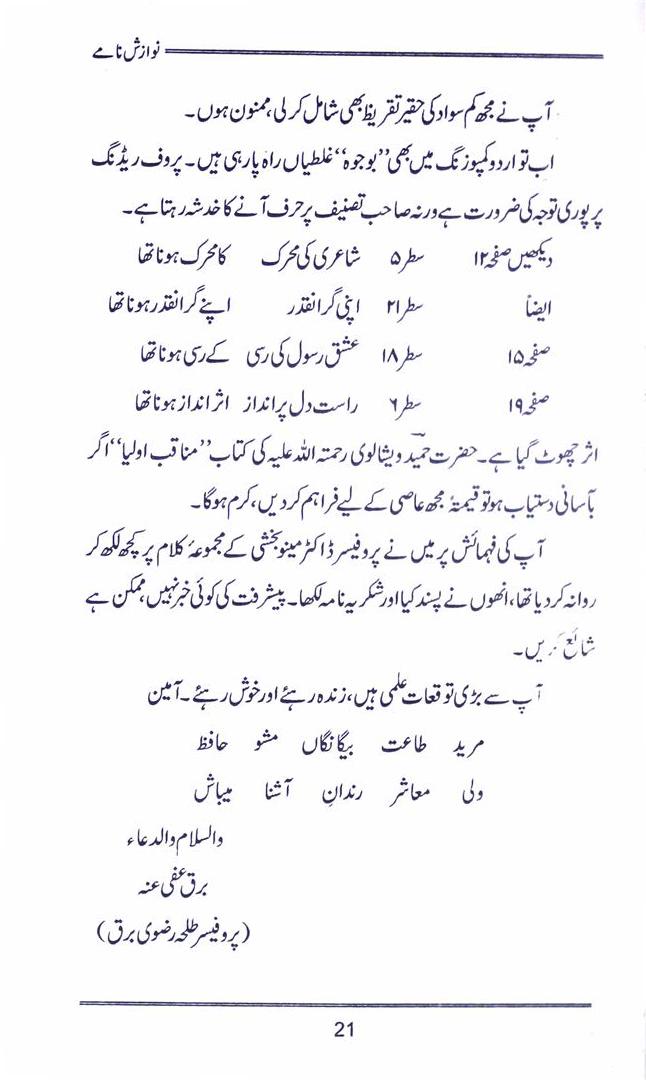 نوازش نامے
آپ نے مجھ کم سواد کی حقیر تقریظ بھی شامل کر لی، ممنون ہوں۔
اب تو اردو کمپوزنگ میں بھی ”بوجوہ“ غلطیاں راہ پا رہی ہیں۔ پروف ریڈنگ
پر پوری توجہ کی ضرورت ہے ورنہ صاحب تصنیف پر حرف آنے کا خدشہ رہتا ہے۔
دیکھیں صفحہ ۱۲ سطر ۵ شاعری کی محرک کا محرک ہونا تھا
ایضاً سطر ۲۱ اپنی گرانقدر اپنے گرانقدر ہونا تھا
صفحہ ۱۵ سطر ۱۸ عشق رسول کی رسی کے رسی ہونا تھا
صفحہ ۱۹ سطر ۶ راست دل پر انداز اثر انداز ہونا تھا
اثر چھوٹ گیا ہے۔ حضرت حمید ویشالوی رحمتہ اللہ علیہ کی کتاب ”مناقب اولیا“ اگر
بآسانی دستیاب ہو تو قیمتۂ مجھ عاصی کے لیے فراہم کر دیں، کرم ہوگا۔
آپ کی فہمائش پر میں نے پروفیسر ڈاکٹر مینو بخشی کے مجموعۂ کلام پر کچھ لکھ کر
روانہ کر دیا تھا، انھوں نے پسند کیا اور شکریہ نامہ لکھا۔ پیشرفت کی کوئی خبر نہیں، ممکن ہے
شائع کریں۔
آپ سے بڑی توقعات علمی ہیں، زندہ رہئے اور خوش رہئے۔ آمین
مرید طاعت بیگانگاں مشو حافظ
ولی معاشر رندانِ آشنا میباش
والسلام والدعاء
برق عفی عنہ
(پروفیسر طلحہ رضوی برق)
21